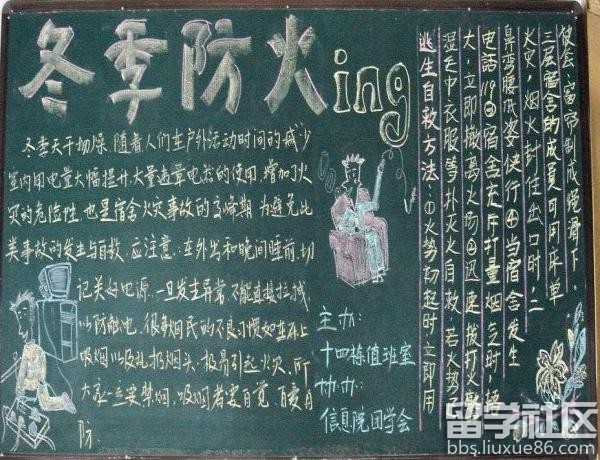 冬季防火ing
冬季天干物燥,随着人们在户外活动时间的减少
室内用电量大幅提升,大量违章电器的使用,增加了火
灾的危险性,也是宿舍火灾事故的高峰期,为避免此
类事故的发生与自救,应注意:在外出和晚间睡前,切
记关好电源,一旦发生异常,不能直接扑救,
以防触电,很多烟民的不良习惯如在床上
吸烟以及乱扔烟头,极易引起火灾,所
大家一定要禁烟,吸烟者要自觉,自爱自
防.
主办:
十四栋值班室
协办:
信息院团学会
逃生自救方法:①火势初起时立即用
湿毛巾衣服等扑灭火自救,若火势过
大,立即撤离火场②迅速拨打火警
电话119③宿舍充斥打量烟气时,捂
鼻弯腰低姿快行④当宿舍发生
火灾,烟火封住出口时,二
三层宿舍的成员可用床单
窗帘制成绳滑下.
留学社区
bbs.liuxue86.com